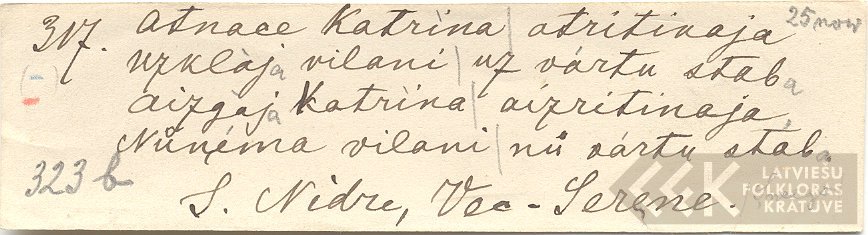 317. Atnace Katrina | atritinaja 25 nov
Uzklàja vilani | uz vàrtu staba
Aizgàja Katrina | aizritinaja,
Nůnéma vilani | nů vàrtu staba.
323 b
S. Nidre, Vec-Serene.
LATVIEŠU
FOLKLORAS
KRĀTUVE